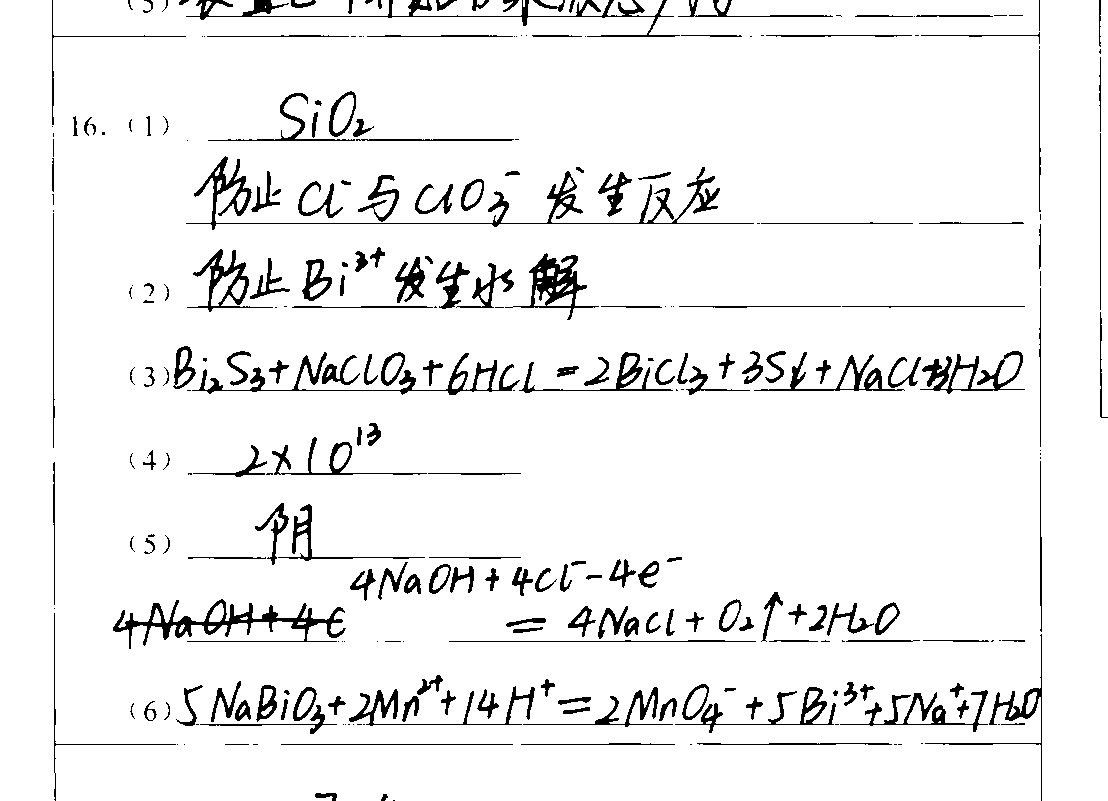 16.(1) SiO₂
防止Cl⁻与ClO₃⁻发生反应
(2) 防止Bi³⁺发生水解
(3) Bi₂S₃+NaClO₃+6HCl=2BiCl₃+3S↓+NaCl+3H₂O
(4) 2×10¹³
(5) 阴
4NaOH+4Cl⁻-4e⁻
=4NaCl+O₂↑+2H₂O
(6) 5NaBiO₃+2Mn²⁺+14H⁺=2MnO₄⁻+5Bi³⁺+5Na⁺+7H₂O